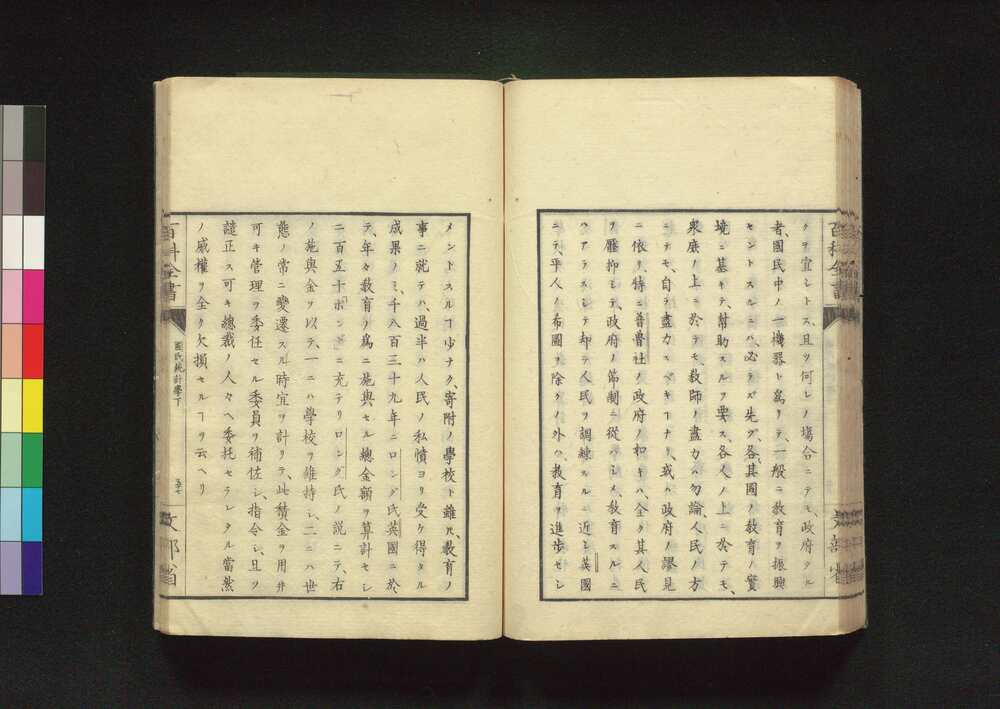 クヲ宜シトス、且ツ何レノ塲合ニテモ、政府タル
者、國民中ノ一機器ト爲リテ、一般ニ教育ヲ振興
セントスルニハ、必ラズ先ヅ、各其國ノ教育ノ實
境ニ基キテ、幇助スルヲ要ス、各人ノ上ニ於テモ、
衆庶ノ上ニ於テモ、教師ノ盡力ハ勿論、人民ノ方
ニテモ、自ラ盡力スベキヿナリ、或ハ政府ノ謬見
ニ依リ、特ニ普魯社ノ政府ノ如キハ、全ク其人民
ヲ壓抑シテ、政府ノ節制ニ從ハシメ、教育スルニ
ハアラズシテ却テ人民ヲ調練スルニ近シ英國
ニテ、平人ノ希圖ヲ除クノ外ハ、教育ヲ進歩セシ
百科全書
國民統計學下
五十七
文部省
メントスルヿ少ナク、寄附ノ學校ト雖𪜈、教育ノ
事ニ就テハ、過半ハ人民ノ私憤ヨリ受ケ得タル
成果ノミ、千八百三十九年ニロング氏英國ニ於
テ、年々教育ノ爲ニ施與セル總金額ヲ算計セシ
ニ百五十ポンドニ充テリロング氏ノ説ニテ、右
ノ施與金ヲ以テ、一ニハ學校ヲ維持シ、二ニハ世
態ノ常ニ變遷スル時宜ヲ計リテ、此積金ヲ用井
可キ管理ヲ委任セル委員ヲ補佐シ、指令シ、且ツ
譴正ス可キ總裁ノ人々ヘ委托セラレタル當然
ノ威權ヲ全ク欠損セルヿヲ云ヘリ